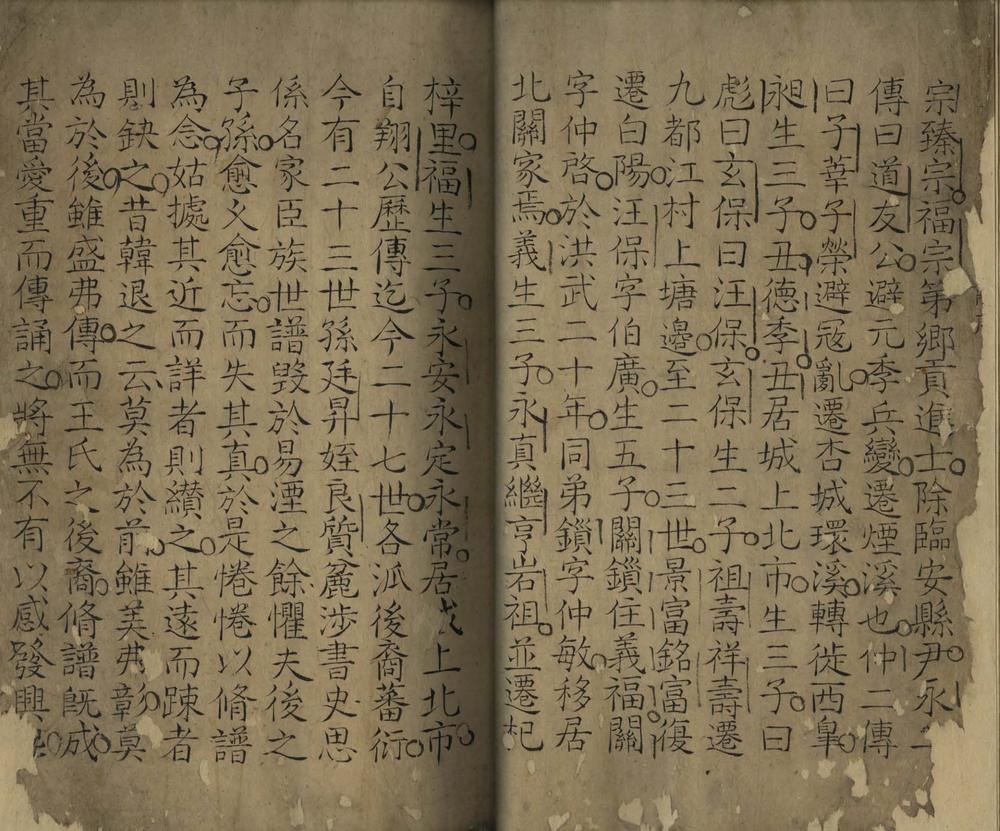 宗臻宗福宗第鄉貢進士除臨安縣尹永二
傳曰道友公避元季兵變遷煙溪也仲二傳
曰子莘子榮避冦亂遷杏城環溪轉徙西臯
昶生三子丑德季丑居城上北市生三子曰
彪曰玄保曰汪保玄保生二子祖壽祥壽遷
九都江村上塘邉至二十三世景富銘富復
遷白陽汪保字伯廣生五子關鎖住義福關
字仲啓於洪武二十年同弟鎖字仲敏移居
北關家焉義生三子永真繼亨岩祖並遷杞
梓里福生三子永安永定永常居上北市
自翔公歷傳迄今二十七世各派後裔蕃衍
今有二十三世孫廷昇姪良質麄涉書史思
係名家臣族世譜毀於易湮之餘懼夫後之
子孫愈乆愈忘而失其真於是惓惓以脩譜
為念姑據其近而詳者則纉之其遠而踈者
則缺之昔韓退之云莫為於前雖美弗彰莫
為於後雖盛弗傳而王氏之後裔脩譜既成
其當愛重而傳誦之將無不有以感發興